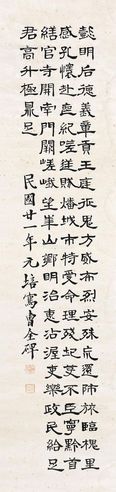 懿明后德義章貢王庭征鬼方威布烈安殊荒還師旅臨槐里
感孔懷赴喪紀嗟逆賊燔城市特受命理殘圮芟不臣寧黔首
繕官寺開南門闕嵯峨望華山鄉明治惠沾渥吏樂政民給足
君高升極鼎足 民國廿一年元培寫曹全碑